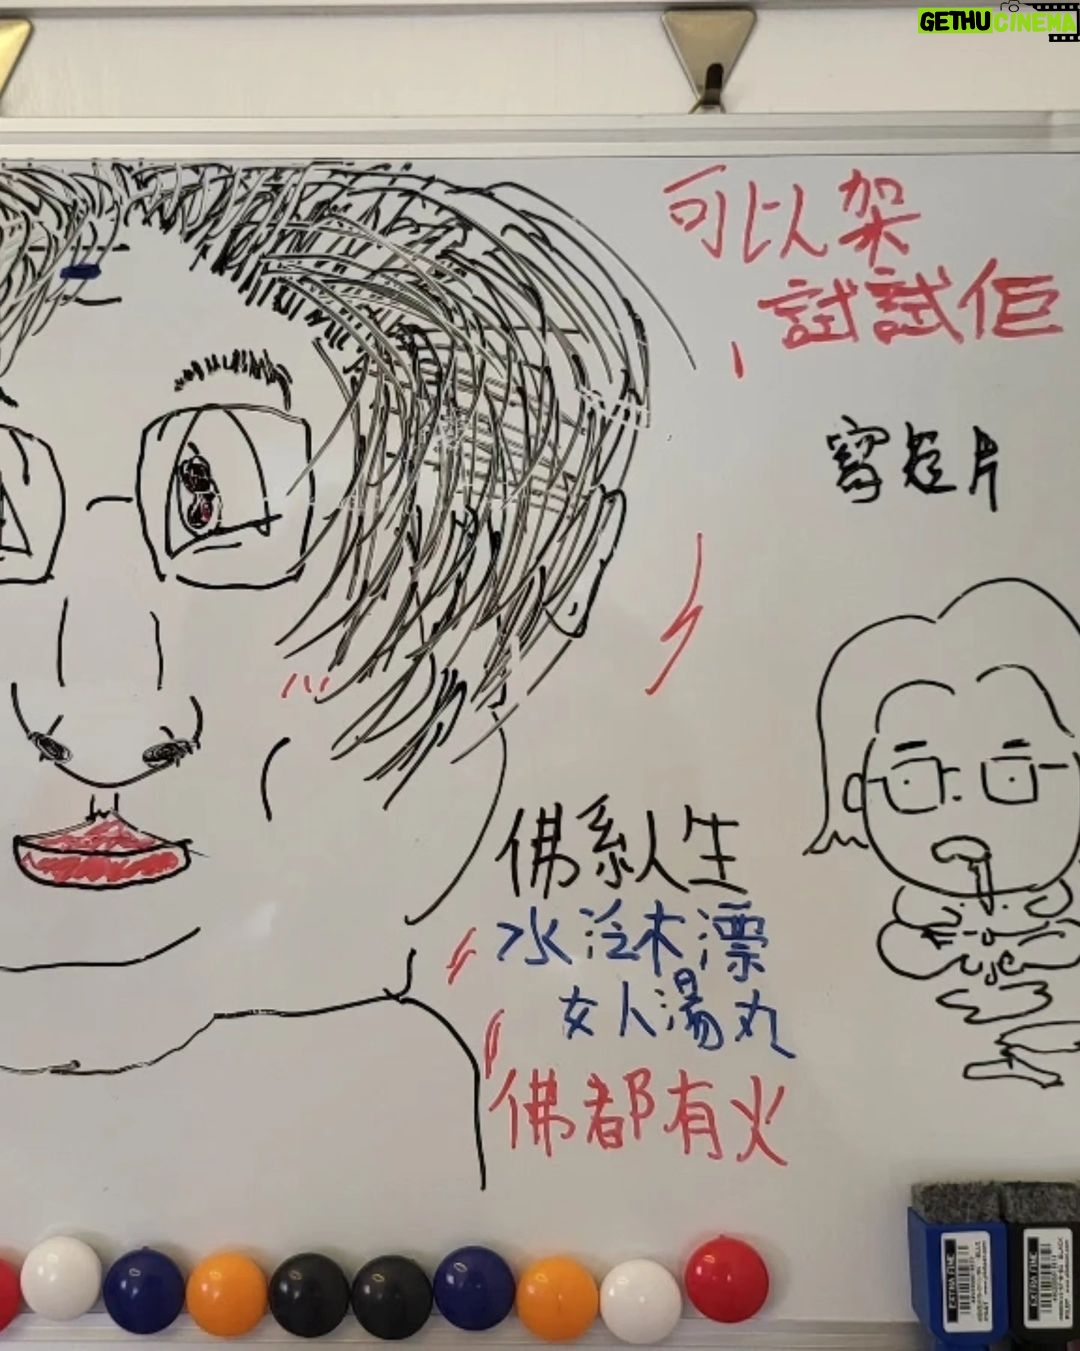 GETHUCINEMA
可以架
試試佢
寫短片
佛系人生
水泛木漂
女人湯丸
佛都有火
EXTRA FINE
EXTRA FINE